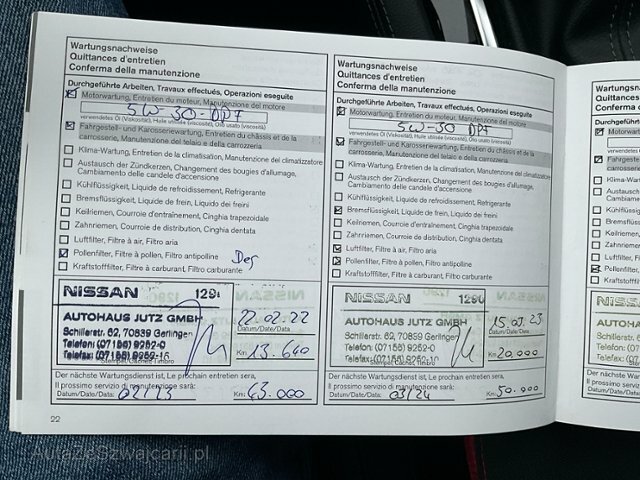 Wartungsnachweise
Quittances d'entretien
Conferma della manutenzione
Durchgeführte Arbeiten, Travaux effectués, Operazioni eseguite
Motorwartung, Entretien du moteur, Manutenzione del motore
5W-30-DPF
verwendetes Öl (Viskosität), Huile utilisée (viscosité), Olio usato (viscosità)
Fahrgestell- und Karosseriewartung, Entretien du châssis et de la
carrosserie, Manutenzione del telaio e della carrozzeria
Klima-Wartung, Entretien de la climatisation, Manutenzione del climatizzatore
Austausch der Zündkerzen, Changement des bougies d'allumage,
Cambiamento delle candele d'accensione
Kühlflüssigkeit, Liquide de refroidissement, Refrigerante
Bremsflüssigkeit, Liquide de frein, Liquido dei freini
Keilriemen, Courroie d'entraînement, Cinghia trapezoidale
Zahnriemen, Courroie de distribution, Cinghia dentata
Luftfilter, Filtre à air, Filtro aria
Pollenfilter, Filtre à pollen, Filtro antipolline
Kraftstofffilter, Filtre à carburant, Filtro carburante
NISSAN 129
AUTOHAUS JUTZ GMBH
Schillerstr. 62, 70839 Gerlingen
Telefon: (07156) 9252-0
Telefax: (07156) 9252-15
Stempel, Cachet, Timbro
22.02.22
Datum/Date/Data
Km: 13.640
Der nächste Wartungsdienst ist, Le prochain entretien sera,
Il prossimo servizio di manutenzione sarà:
Datum/Date/Data: 02/23 Km: 43.000
22
Wartungsnachweise
Quittances d'entretien
Conferma della manutenzione
Durchgeführte Arbeiten, Travaux effectués, Operazioni eseguite
Motorwartung, Entretien du moteur, Manutenzione del motore
5W-30 DPF
verwendetes Öl (Viskosität), Huile utilisée (viscosité), Olio usato (viscosità)
Fahrgestell- und Karosseriewartung, Entretien du châssis et de la
carrosserie, Manutenzione del telaio e della carrozzeria
Klima-Wartung, Entretien de la climatisation, Manutenzione del climatizzatore
Austausch der Zündkerzen, Changement des bougies d'allumage,
Cambiamento delle candele d'accensione
Kühlflüssigkeit, Liquide de refroidissement, Refrigerante
Bremsflüssigkeit, Liquide de frein, Liquido dei freini
Keilriemen, Courroie d'entraînement, Cinghia trapezoidale
Zahnriemen, Courroie de distribution, Cinghia dentata
Luftfilter, Filtre à air, Filtro aria
Pollenfilter, Filtre à pollen, Filtro antipolline
Kraftstofffilter, Filtre à carburant, Filtro carburante
NISSAN 1290
AUTOHAUS JUTZ GMBH
Schillerstr. 62, 70839 Gerlingen
Telefon: (07156) 9252-0
Telefax: (07156) 9252-15
Stempel, Cachet, Timbro
15.03.23
Datum/Date/Data
Km: 20.000
Der nächste Wartungsdienst ist, Le prochain entretien sera,
Il prossimo servizio di manutenzione sarà:
Datum/Date/Data: 03/24 Km: 50.000
AutaZeSzwajcarii.pl